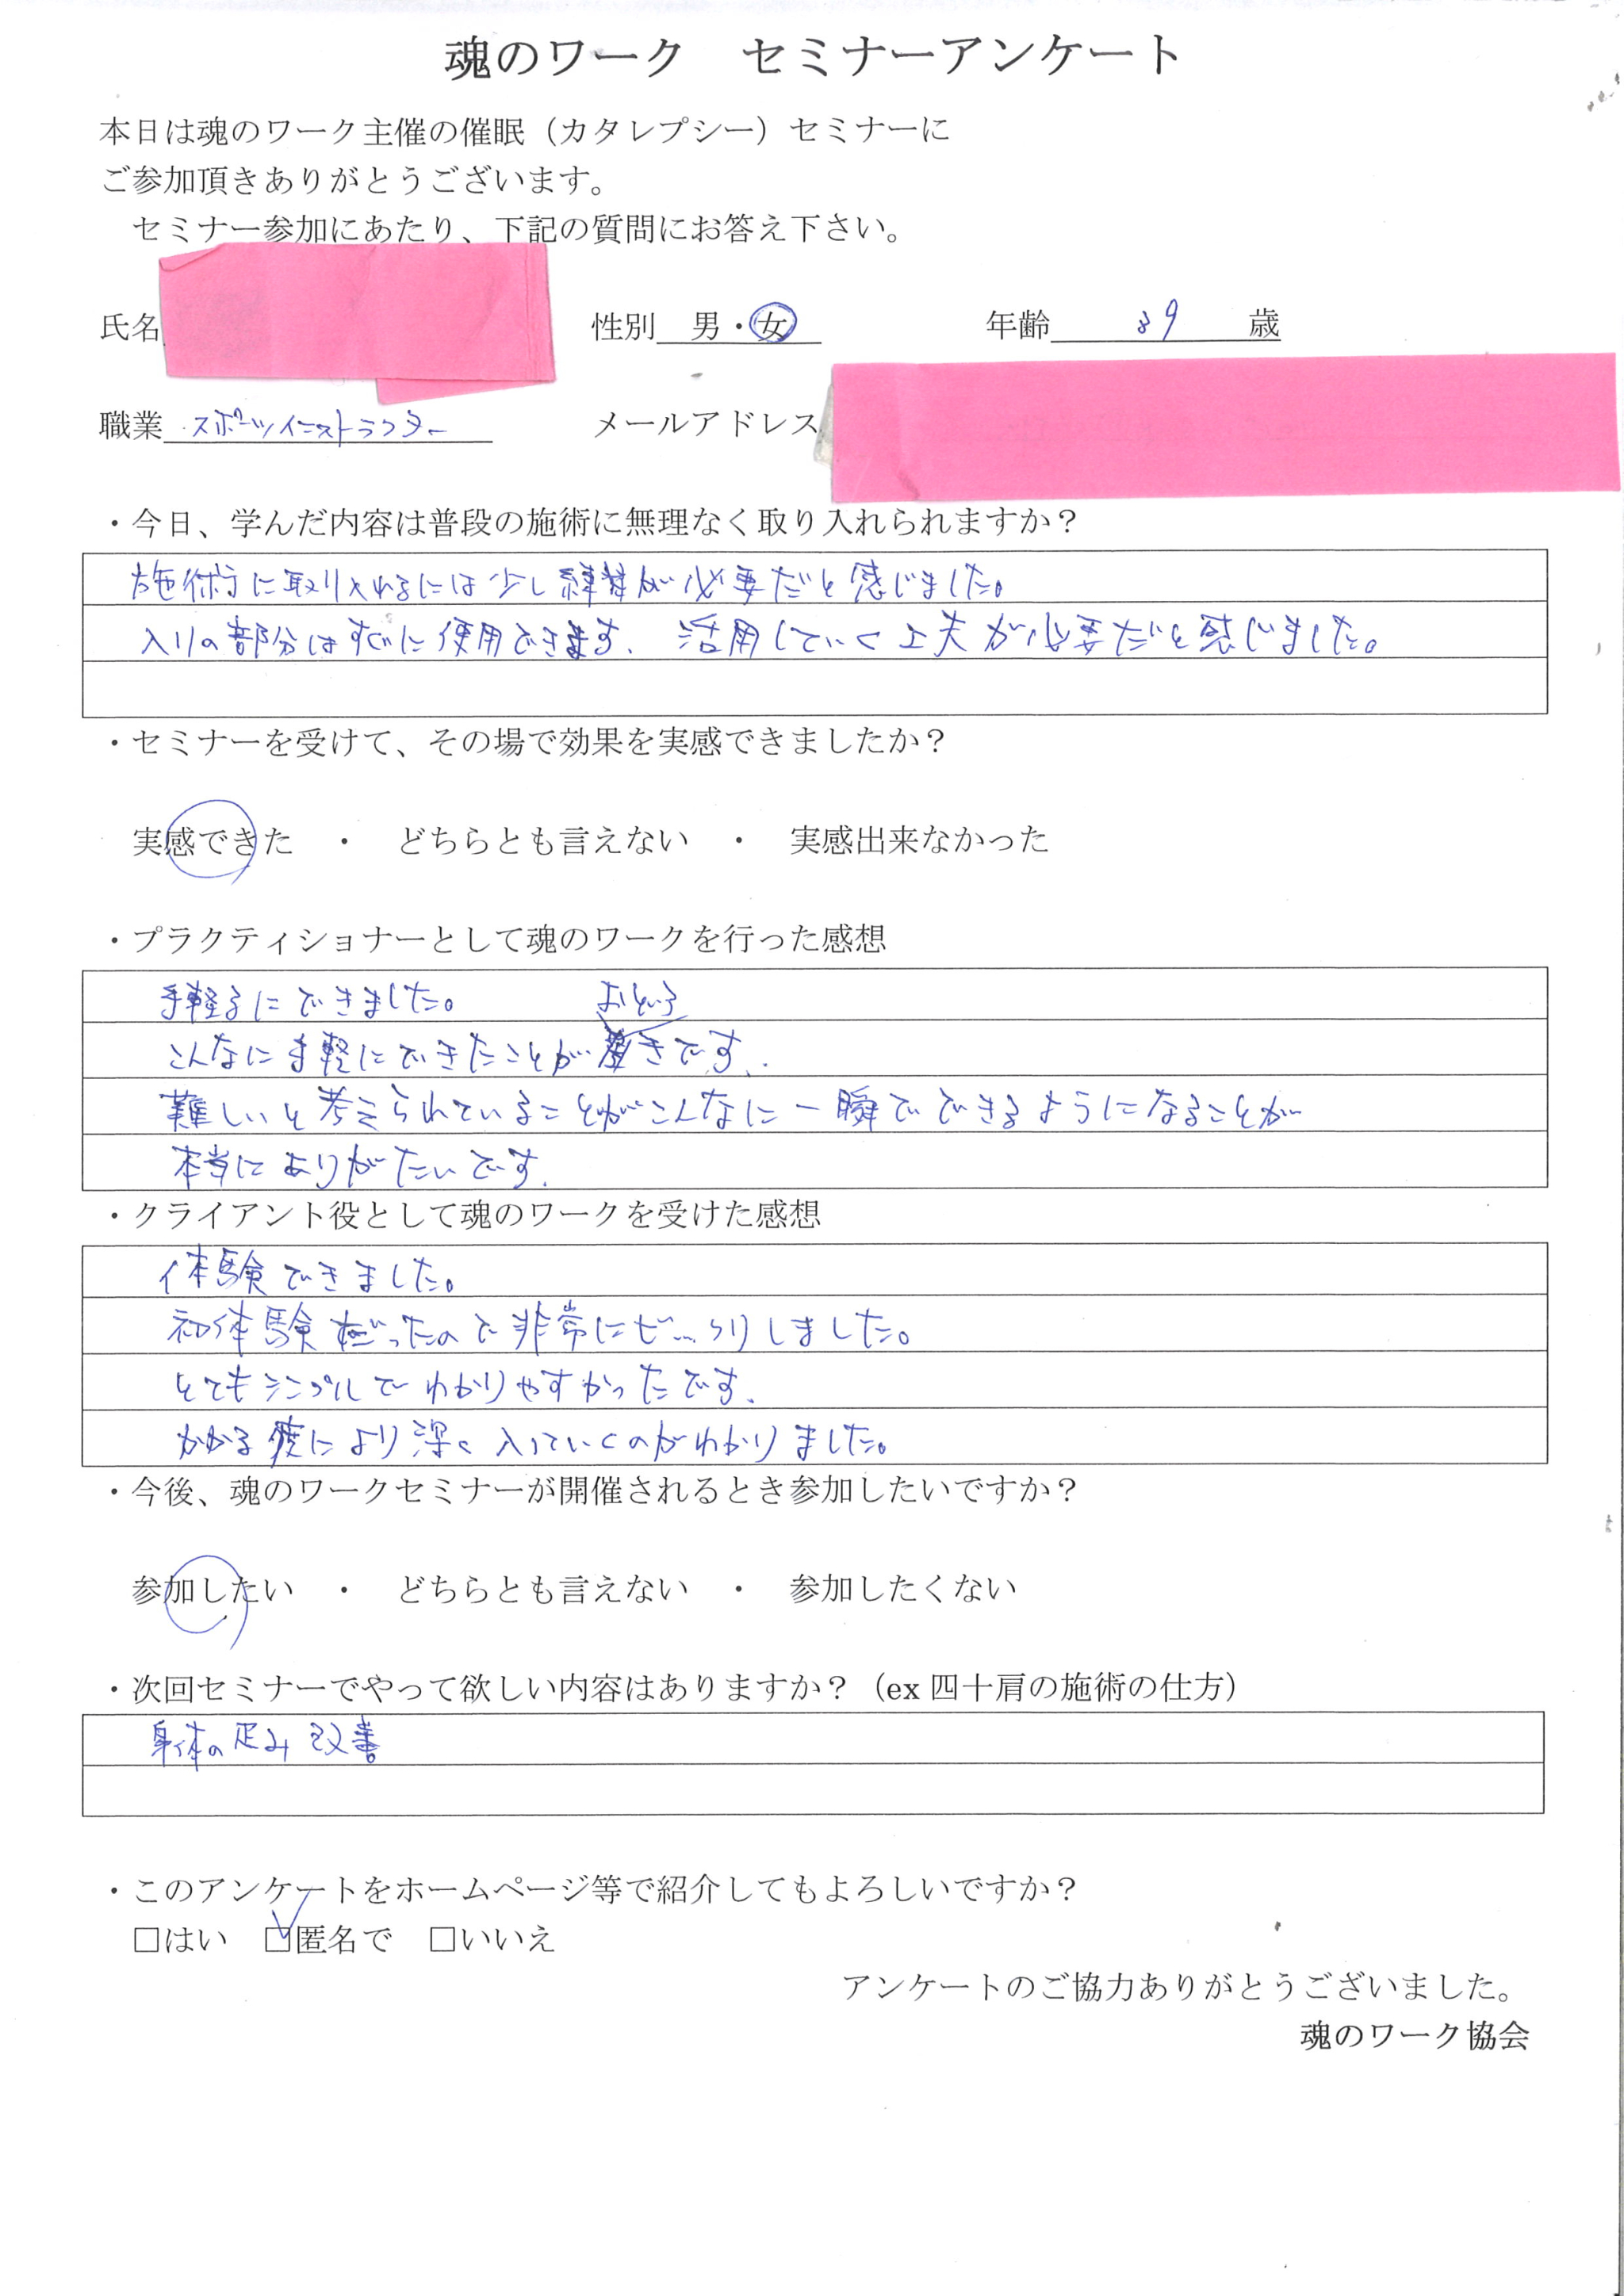 魂のワーク　セミナーアンケート
本日は魂のワーク主催の催眠（カタレプシー）セミナーに
ご参加頂きありがとうございます。
セミナー参加にあたり、下記の質問にお答え下さい。
氏名　性別　男・女　年齢　39　歳
職業　スポーツインストラクター　メールアドレス
・今日、学んだ内容は普段の施術に無理なく取り入れられますか？
施術に取り入れるには少し練習が必要だと感じました。
入りの部分はすぐに使用できます。活用していく工夫が必要だと感じました。
・セミナーを受けて、その場で効果を実感できましたか？
実感できた　・　どちらとも言えない　・　実感出来なかった
・プラクティショナーとして魂のワークを行った感想
手軽るにできました。
おどろ
こんなに手軽にできたことが きです。
難しいと考えられていることがこんなに一瞬でできるようになることが
本当にありがたいです。
・クライアント役として魂のワークを受けた感想
体験できました。
初体験だったので非常にビックリしました。
とてもシンプルでわかりやすかったです。
かかる度により深く入っていくのがわかりました。
・今後、魂のワークセミナーが開催されるとき参加したいですか？
参加したい　・　どちらとも言えない　・　参加したくない
・次回セミナーでやって欲しい内容はありますか？（ex 四十肩の施術の仕方）
身体の 改善
・このアンケートをホームページ等で紹介してもよろしいですか？
□はい　□匿名で　□いいえ
アンケートのご協力ありがとうございました。
魂のワーク協会